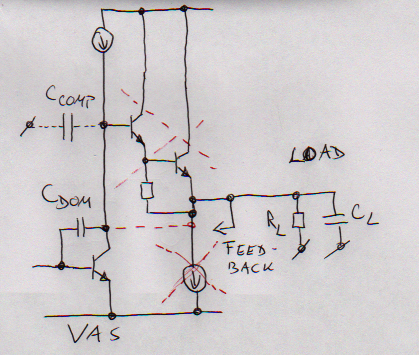 C COMP
LOAD
C DOM
R L
C L
FEED-
BACK
VAS